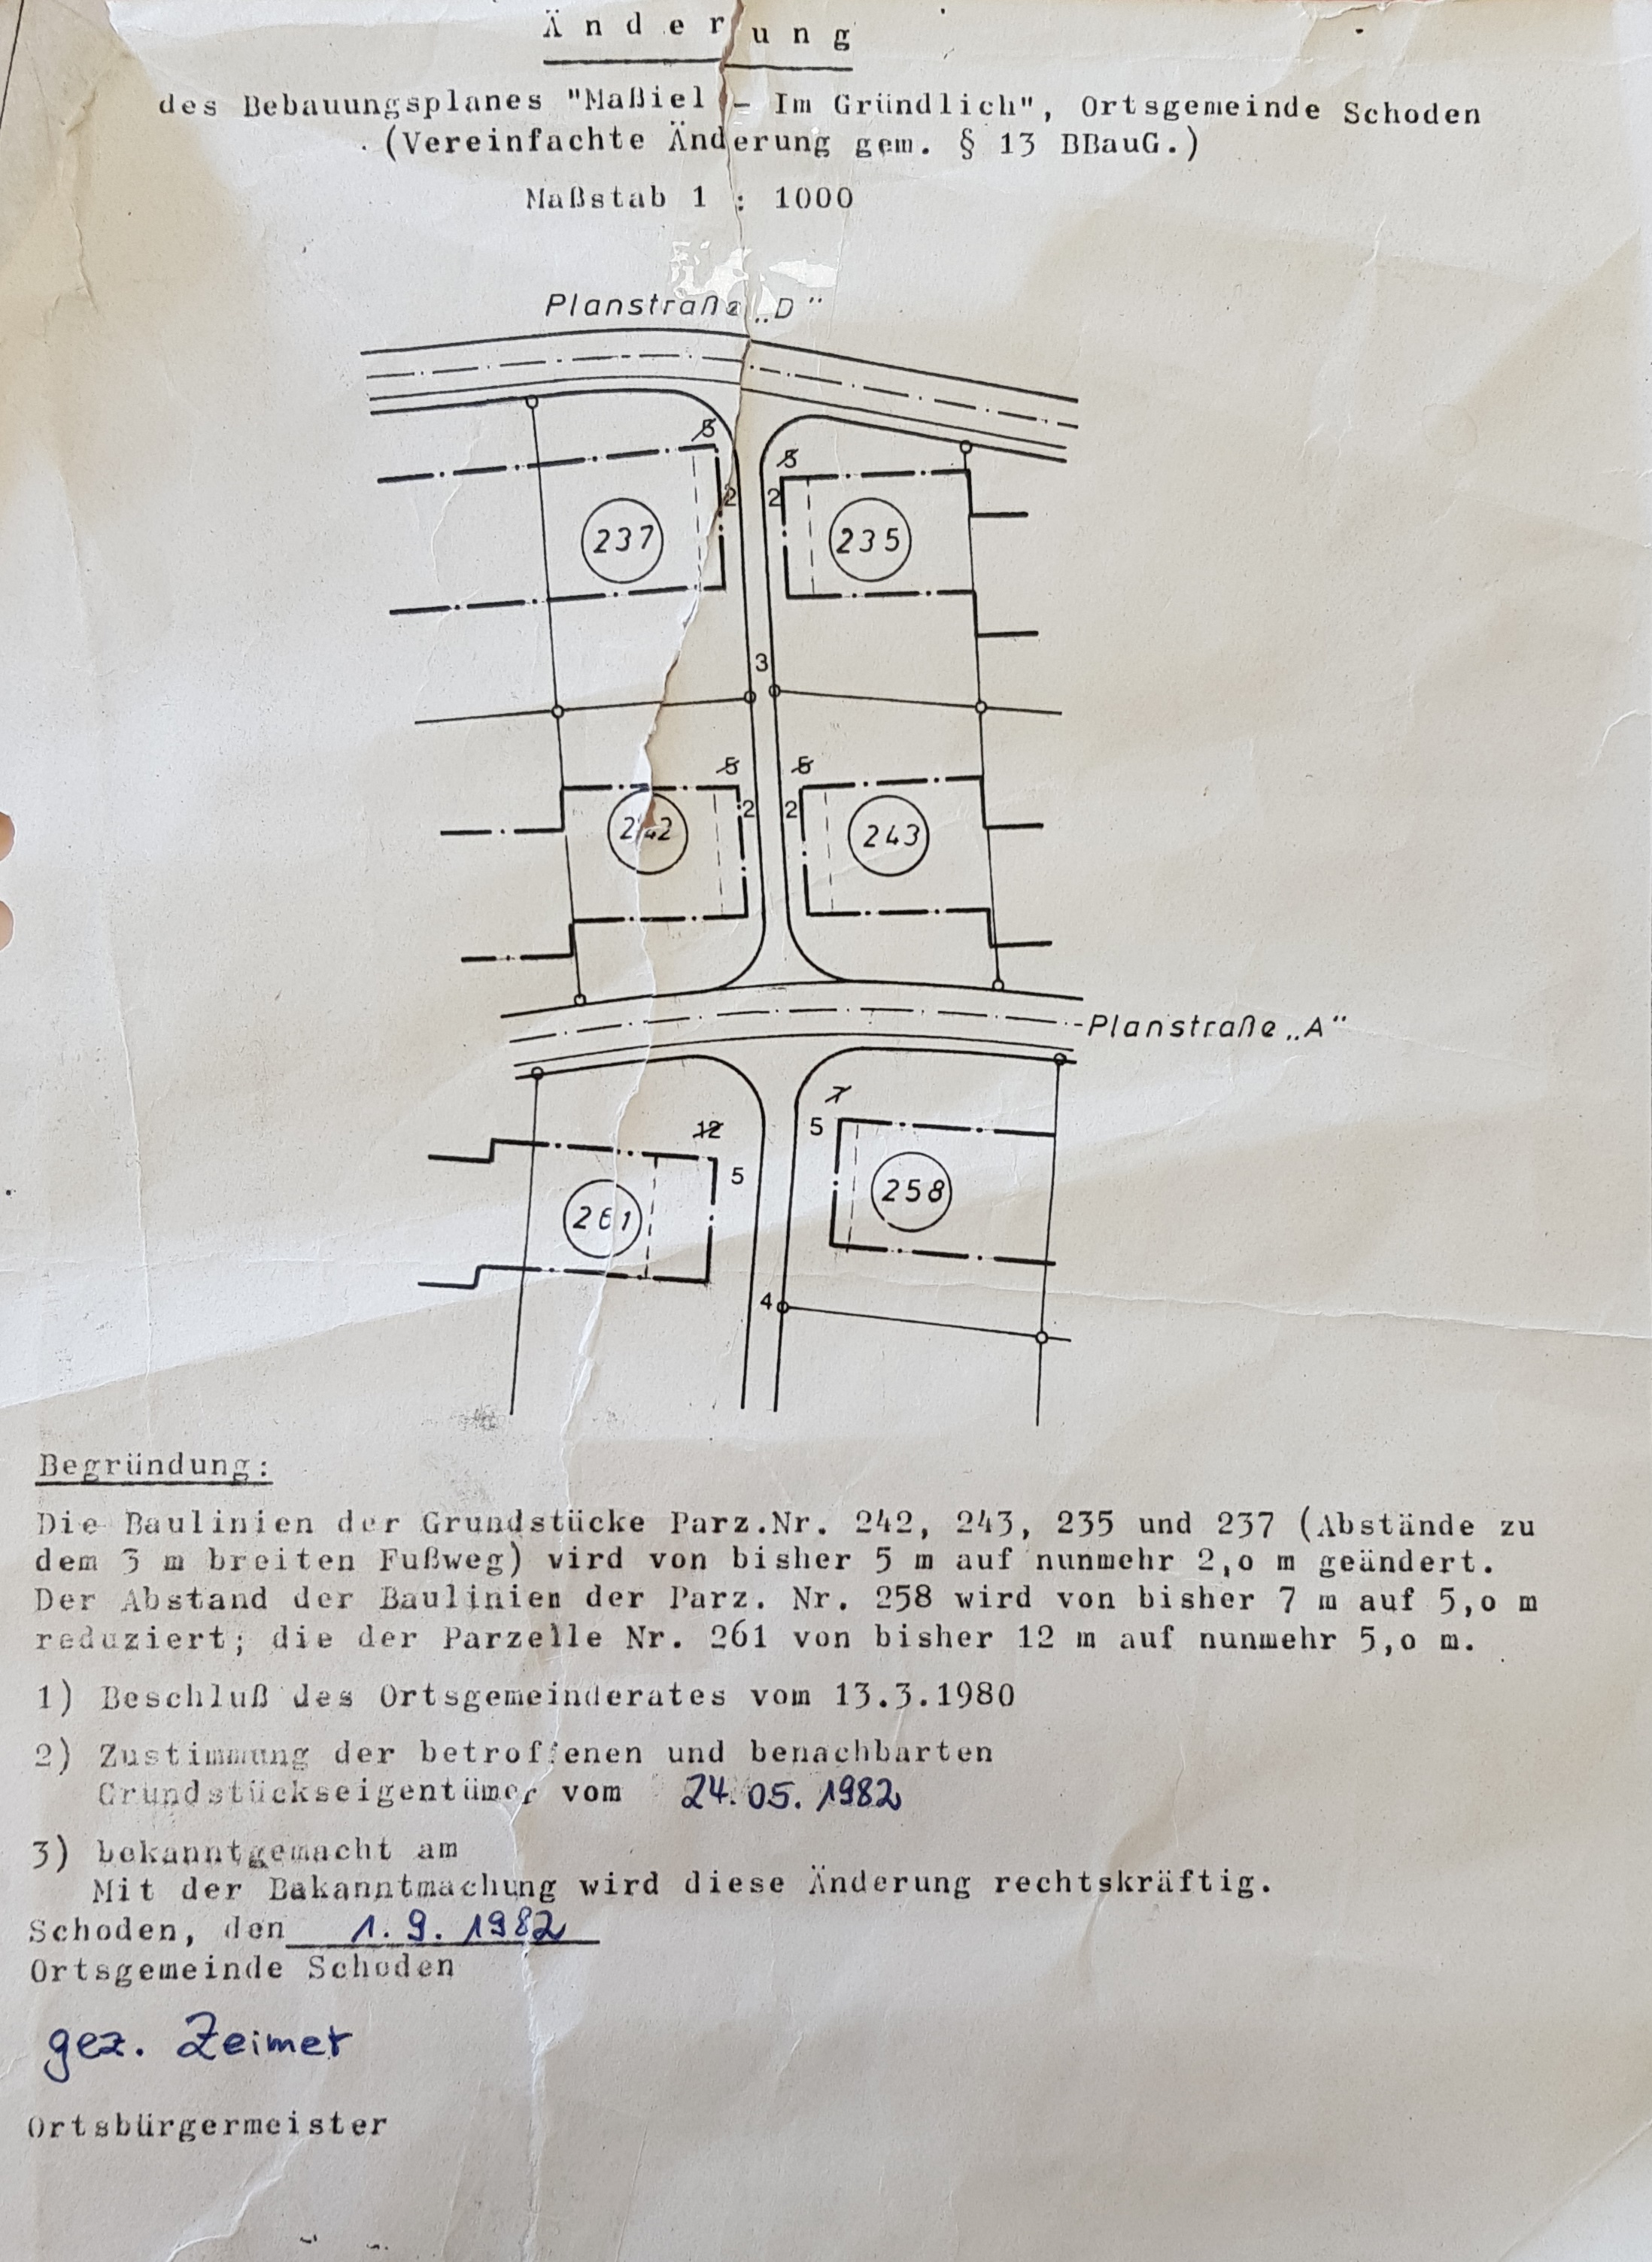 Änderung
des Bebauungsplanes "Maßiel - Im Gründlich", Ortsgemeinde Schoden
(Vereinfachte Änderung gem. § 13 BBauG.)
Maßstab 1 : 1000
Planstraße „D“
5
5
2
2
237
235
3
5
5
2
2
242
243
Planstraße „A“
7
12
5
5
261
258
4
Begründung:
Die Baulinien der Grundstücke Parz.Nr. 242, 243, 235 und 237 (Abstände zu
dem 3 m breiten Fußweg) wird von bisher 5 m auf nunmehr 2,o m geändert.
Der Abstand der Baulinien der Parz. Nr. 258 wird von bisher 7 m auf 5,o m
reduziert; die der Parzelle Nr. 261 von bisher 12 m auf nunmehr 5,o m.
1) Beschluß des Ortsgemeinderates vom 13.3.1980
2) Zustimmung der betroffenen und benachbarten
Grundstückseigentümer vom 24.05.1982
3) bekanntgemacht am
Mit der Bekanntmachung wird diese Änderung rechtskräftig.
Schoden, den 1.9.1982
Ortsgemeinde Schoden
gez. Zeimet
Ortsbürgermeister